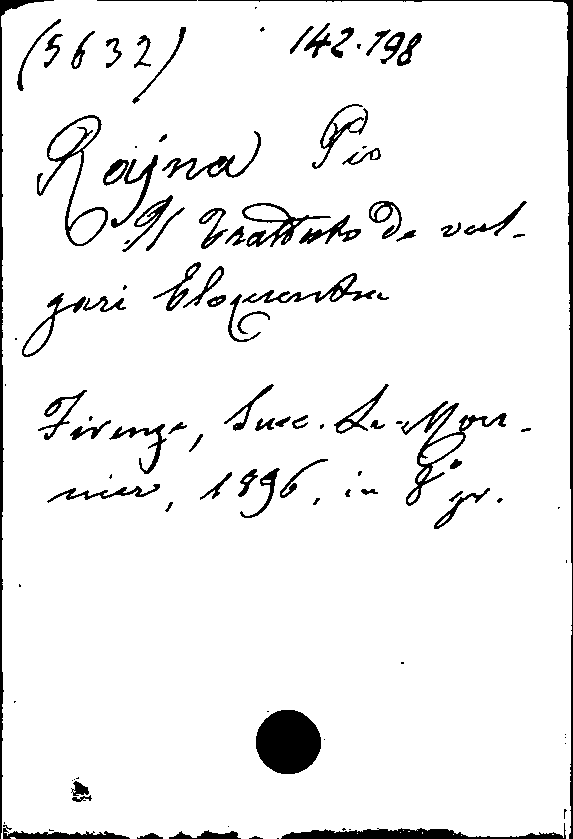 (5632) 142.198
Rajna Pio
Il Trattato De vul-
gari Eloquentia
Firenze, Succ. Le-Mon-
nier, 1896, in 8° gr.